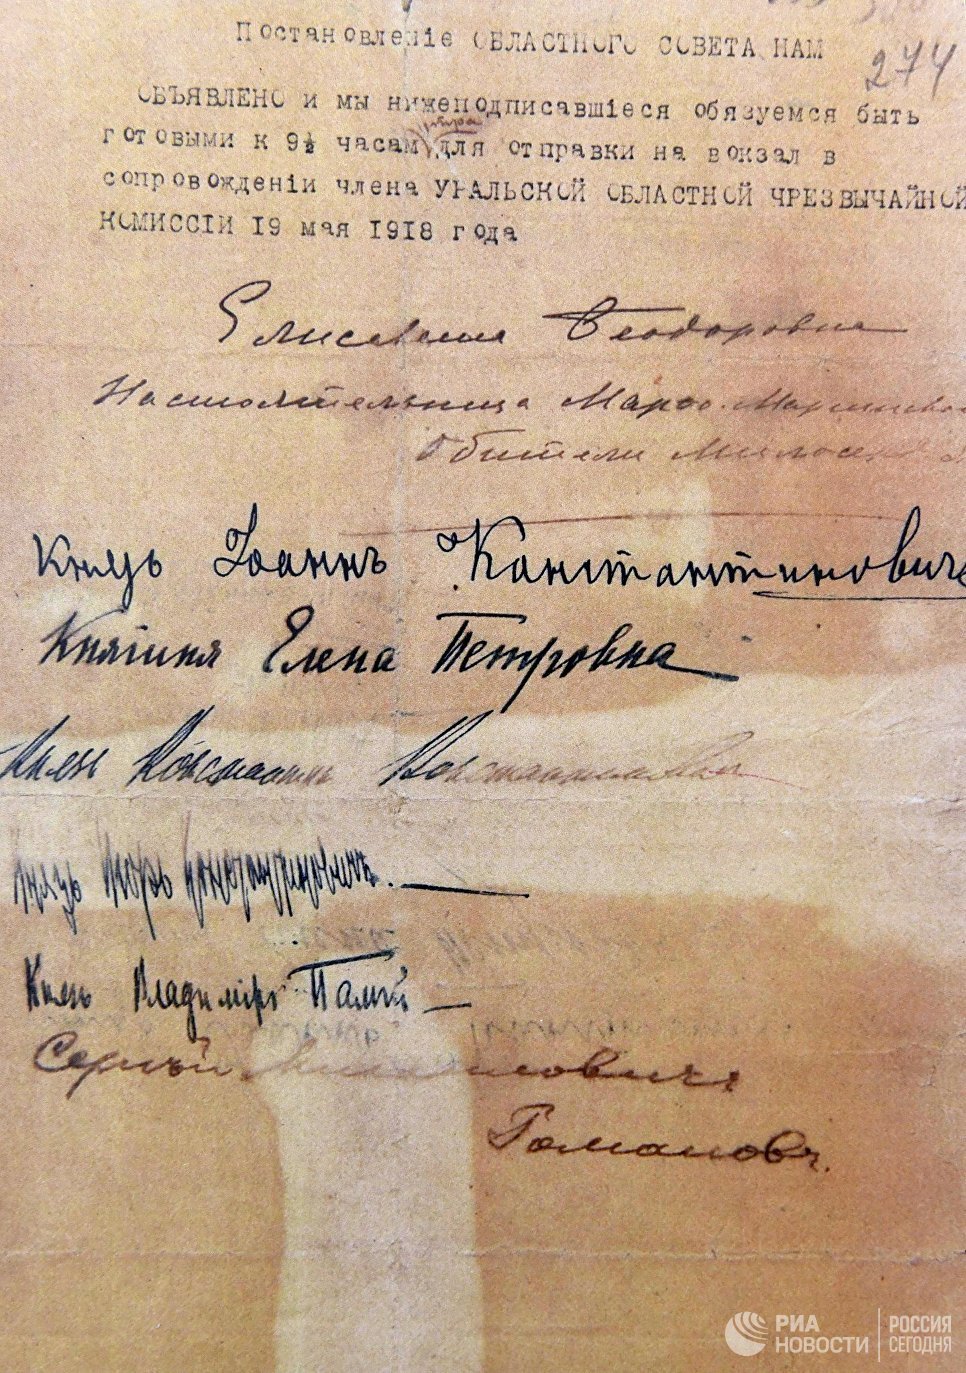 Постановленіе ОБЛАСТНОГО СОВЕТА НАМ
274
ОБЪЯВЛЕНО и мы нижеподписавшіеся обязуемся быть
утра
готовыми к 9½ часам для отправки на вокзал в
сопровожденіи члена УРАЛЬСКОЙ ОБЛАСТНОЙ ЧРЕЗВЫЧАЙНОЙ
КОМИССІИ 19 мая 1918 года
Елисавета Ѳеодоровна
Настоятельница Марѳо-Маріинской
Обители Милосердія
Князь Іоаннъ Константиновичъ
Княгиня Елена Петровна
Князь Константинъ Константиновичъ
Князь Игорь Константиновичъ.
Князь Владиміръ Палѣй
Сергѣй Михайловичъ
Романовъ.
РИА НОВОСТИ
РОССИЯ СЕГОДНЯ